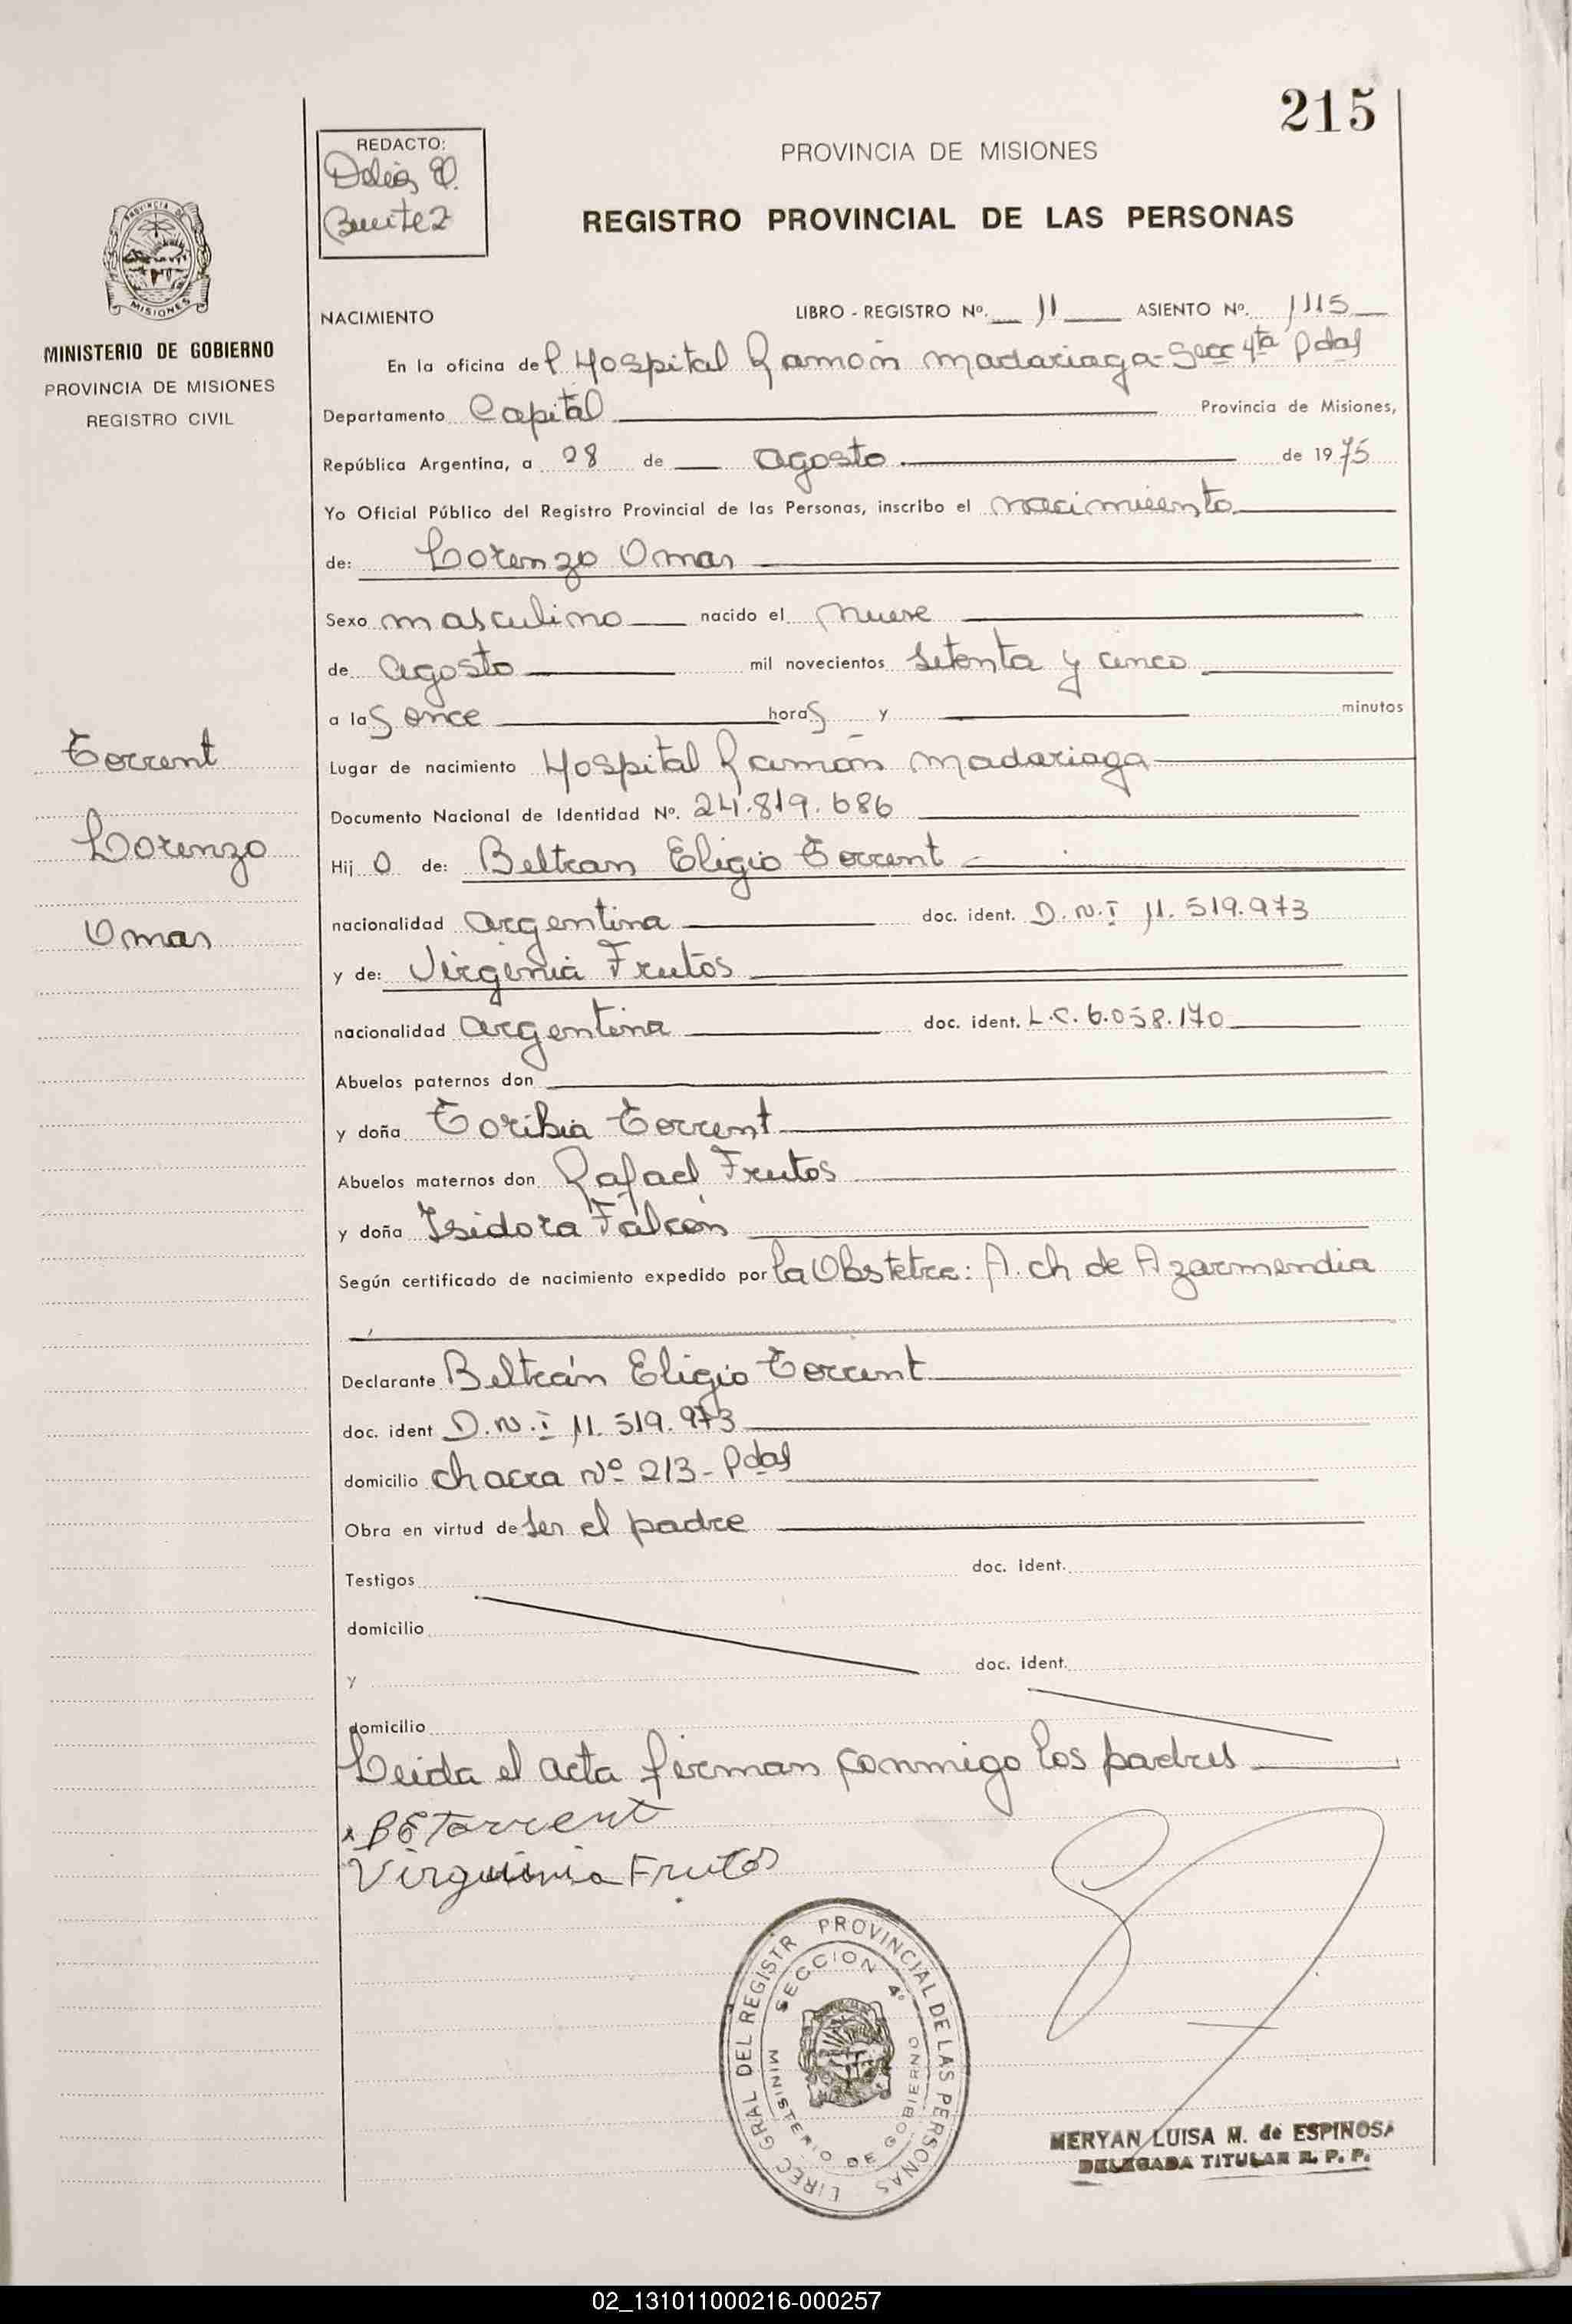 215
REDACTO:
Delia
Benitez
PROVINCIA DE MISIONES
REGISTRO PROVINCIAL DE LAS PERSONAS
PROVINCIA DE
MISIONES
MINISTERIO DE GOBIERNO
PROVINCIA DE MISIONES
REGISTRO CIVIL
Torrent
Lorenzo
Omar
NACIMIENTO LIBRO - REGISTRO Nº. 11 ASIENTO Nº. 1115
En la oficina del Hospital Ramón Madariaga - Secc 4ta Pdas
Departamento Capital Provincia de Misiones,
República Argentina, a 28 de agosto de 1975
Yo Oficial Público del Registro Provincial de las Personas, inscribo el nacimiento
de: Lorenzo Omar
Sexo masculino nacido el nueve
de agosto mil novecientos setenta y cinco
a las once horas y minutos
Lugar de nacimiento Hospital Ramón Madariaga
Documento Nacional de Identidad Nº. 24.819.686
Hijo de: Beltran Eligio Torrent
nacionalidad argentina doc. ident. D.N.I 11.519.973
y de: Virginia Frutos
nacionalidad argentina doc. ident. L.C. 6.058.170
Abuelos paternos don
y doña Toribia Torrent
Abuelos maternos don Rafael Frutos
y doña Isidora Falcón
Según certificado de nacimiento expedido por la Obstetra: A. ch de Azarmendia
Declarante Beltrán Eligio Torrent
doc. ident D.N.I 11.519.973
domicilio chacra Nº 213 - Pdas
Obra en virtud de ser el padre
Testigos doc. ident.
domicilio
y doc. ident.
domicilio
Leida el acta firman conmigo los padres
x BETorrent
Virguinia Frutos
DIREC GRAL DEL REGISTR PROVINCIAL DE LAS PERSONAS
SECCION 4º
MINISTERIO DE GOBIERNO
MERYAN LUISA M. de ESPINOSA
DELEGADA TITULAR R. P. P.
02_131011000216-000257